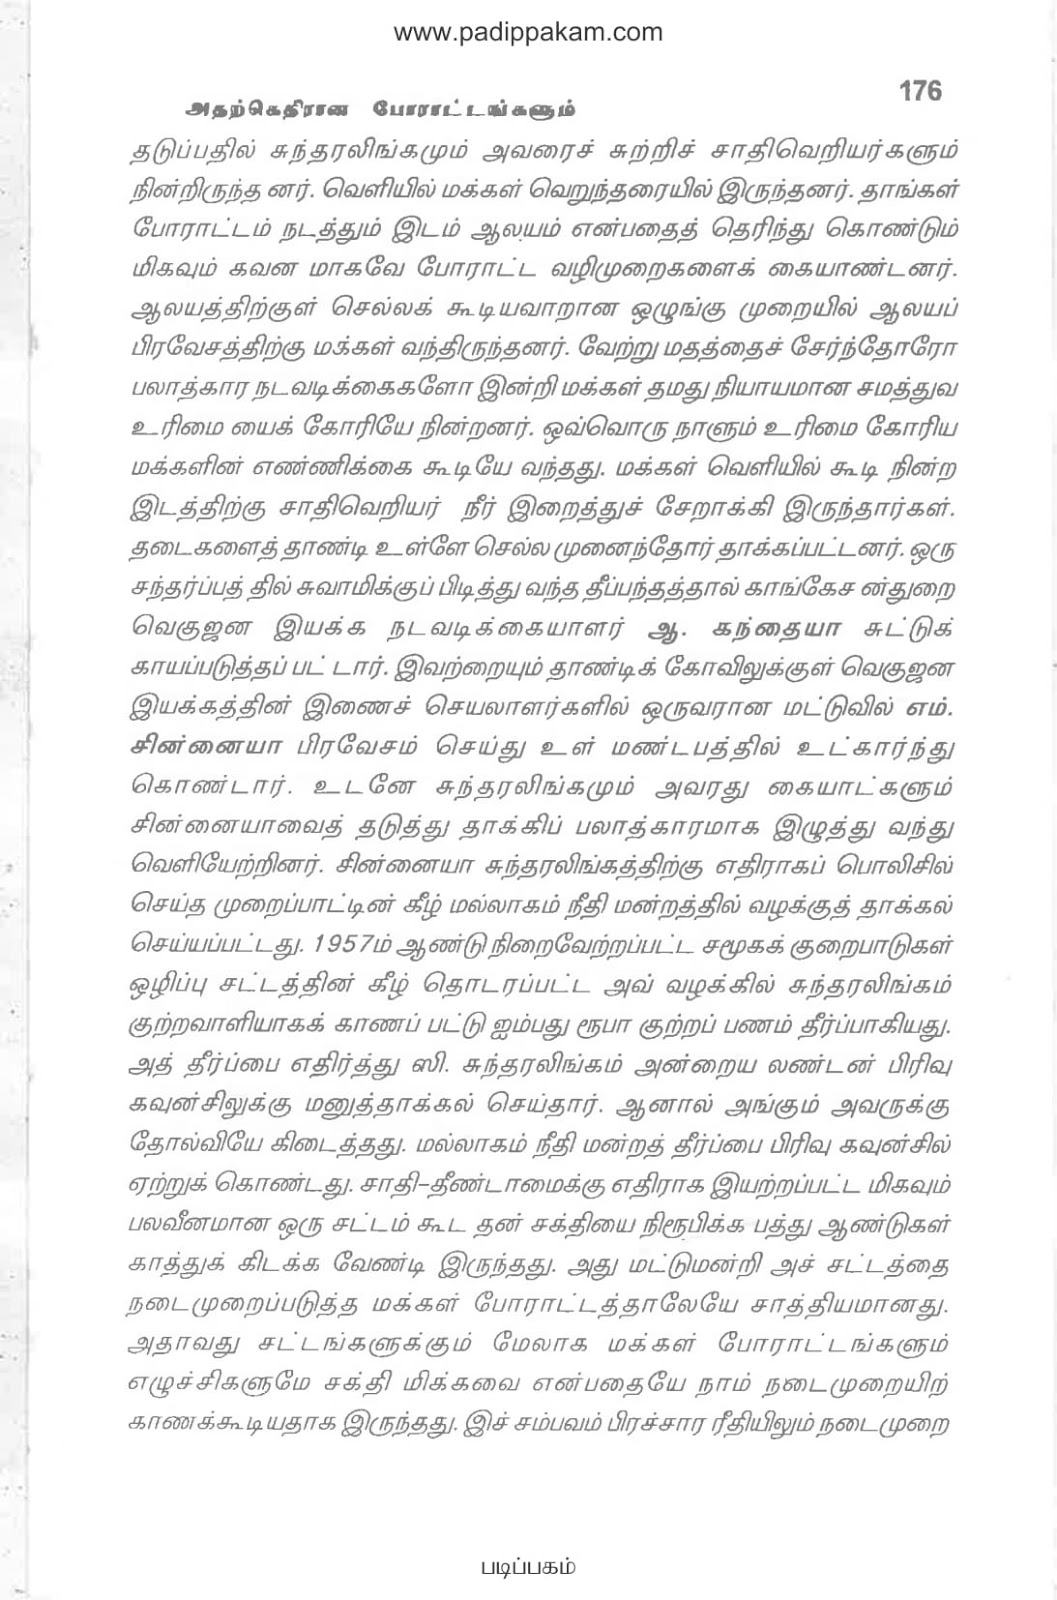 www.padippakam.com
176
அதற்கெதிரான போராட்டங்களும்
தடுப்பதில் சுந்தரலிங்கமும் அவரைச் சுற்றிச் சாதிவெறியர்களும்
நின்றிருந்த னர். வெளியில் மக்கள் வெறுந்தரையில் இருந்தனர். தாங்கள்
போராட்டம் நடத்தும் இடம் ஆலயம் என்பதைத் தெரிந்து கொண்டும்
மிகவும் கவன மாகவே போராட்ட வழிமுறைகளைக் கையாண்டனர்.
ஆலயத்திற்குள் செல்லக் கூடியவாறான ஒழுங்கு முறையில் ஆலயப்
பிரவேசத்திற்கு மக்கள் வந்திருந்தனர். வேற்று மதத்தைச் சேர்ந்தோரோ
பலாத்கார நடவடிக்கைகளோ இன்றி மக்கள் தமது நியாயமான சமத்துவ
உரிமை யைக் கோரியே நின்றனர். ஒவ்வொரு நாளும் உரிமை கோரிய
மக்களின் எண்ணிக்கை கூடியே வந்தது. மக்கள் வெளியில் கூடி நின்ற
இடத்திற்கு சாதிவெறியர் நீர் இறைத்துச் சேறாக்கி இருந்தார்கள்.
தடைகளைத் தாண்டி உள்ளே செல்ல முனைந்தோர் தாக்கப்பட்டனர். ஒரு
சந்தர்ப்பத் தில் சுவாமிக்குப் பிடித்து வந்த தீப்பந்தத்தால் காங்கேச ன்துறை
வெகுஜன இயக்க நடவடிக்கையாளர் ஆ. கந்தையா சுட்டுக்
காயப்படுத்தப் பட் டார். இவற்றையும் தாண்டிக் கோவிலுக்குள் வெகுஜன
இயக்கத்தின் இணைச் செயலாளர்களில் ஒருவரான மட்டுவில் எம்.
சின்னையா பிரவேசம் செய்து உள் மண்டபத்தில் உட்கார்ந்து
கொண்டார். உடனே சுந்தரலிங்கமும் அவரது கையாட்களும்
சின்னையாவைத் தடுத்து தாக்கிப் பலாத்காரமாக இழுத்து வந்து
வெளியேற்றினர். சின்னையா சுந்தரலிங்கத்திற்கு எதிராகப் பொலிசில்
செய்த முறைப்பாட்டின் கீழ் மல்லாகம் நீதி மன்றத்தில் வழக்குத் தாக்கல்
செய்யப்பட்டது. 1957ம் ஆண்டு நிறைவேற்றப்பட்ட சமூகக் குறைபாடுகள்
ஒழிப்பு சட்டத்தின் கீழ் தொடரப்பட்ட அவ் வழக்கில் சுந்தரலிங்கம்
குற்றவாளியாகக் காணப் பட்டு ஐம்பது ரூபா குற்றப் பணம் தீர்ப்பாகியது.
அத் தீர்ப்பை எதிர்த்து ஸி. சுந்தரலிங்கம் அன்றைய லண்டன் பிரிவு
கவுன்சிலுக்கு மனுத்தாக்கல் செய்தார். ஆனால் அங்கும் அவருக்கு
தோல்வியே கிடைத்தது. மல்லாகம் நீதி மன்றத் தீர்ப்பை பிரிவு கவுன்சில்
ஏற்றுக் கொண்டது. சாதி-தீண்டாமைக்கு எதிராக இயற்றப்பட்ட மிகவும்
பலவீனமான ஒரு சட்டம் கூட தன் சக்தியை நிரூபிக்க பத்து ஆண்டுகள்
காத்துக் கிடக்க வேண்டி இருந்தது. அது மட்டுமன்றி அச் சட்டத்தை
நடைமுறைப்படுத்த மக்கள் போராட்டத்தாலேயே சாத்தியமானது.
அதாவது சட்டங்களுக்கும் மேலாக மக்கள் போராட்டங்களும்
எழுச்சிகளுமே சக்தி மிக்கவை என்பதையே நாம் நடைமுறையிற்
காணக்கூடியதாக இருந்தது. இச் சம்பவம் பிரச்சார ரீதியிலும் நடைமுறை
படிப்பகம்